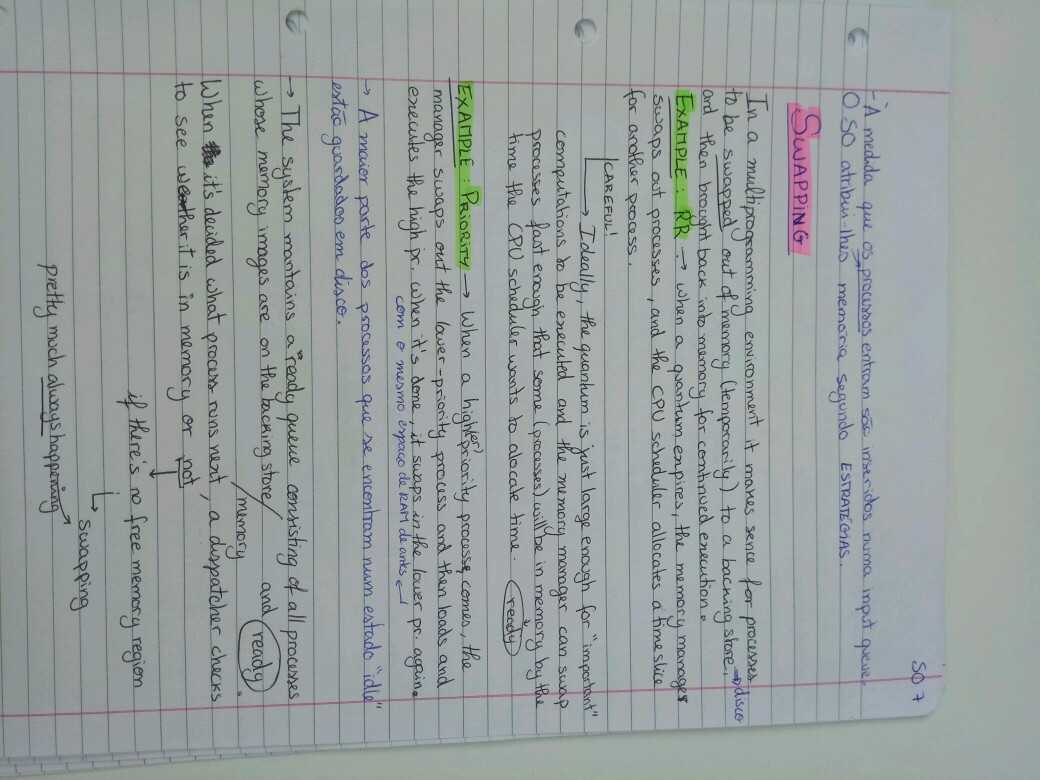 SO 7
- À medida que os processos entram são inseridos numa input queue.
O SO atribui-lhes memoria segundo ESTRATÉGIAS.
SWAPPING
In a multiprogramming environment it makes sence for processes
to be swapped out of memory (temporarily) to a backing store, → disco
and then brought back into memory for continued execution.
EXAMPLE: RR → when a quantum expires, the memory manager
swaps out processes, and the CPU scheduler allocates a time slice
for another process.
CAREFUL!
→ Ideally, the quantum is just large enough for "important"
computations to be executed and the memory manager can swap
processes fast enough that some (processes) will be in memory by the
time the CPU scheduler wants to alocate time. ready
EXAMPLE: PRIORITY → When a high(er) priority process comes, the
manager swaps out the lower-priority process and then loads and
executes the high pr. when it's done, it swaps in the lower pr. again.
com o mesmo espaço de RAM de antes
→ A maior parte dos processos que se encontram num estado "idle"
estão guardados em disco.
→ The system mantains a "ready queue consisting of all processes
whose memory images are on the backing store/ and ready.
/memory
When it's decided what process runs next, a dispatcher checks
to see weather it is in memory or not
if there's no free memory region
swapping
pretty much always happening